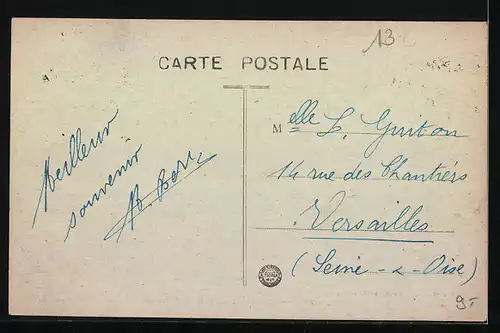 13
CARTE POSTALE
Meilleur
souvenir
Melle L. Guiton
14 rue des Chantiers
Versailles
(Seine-&-Oise)
9-